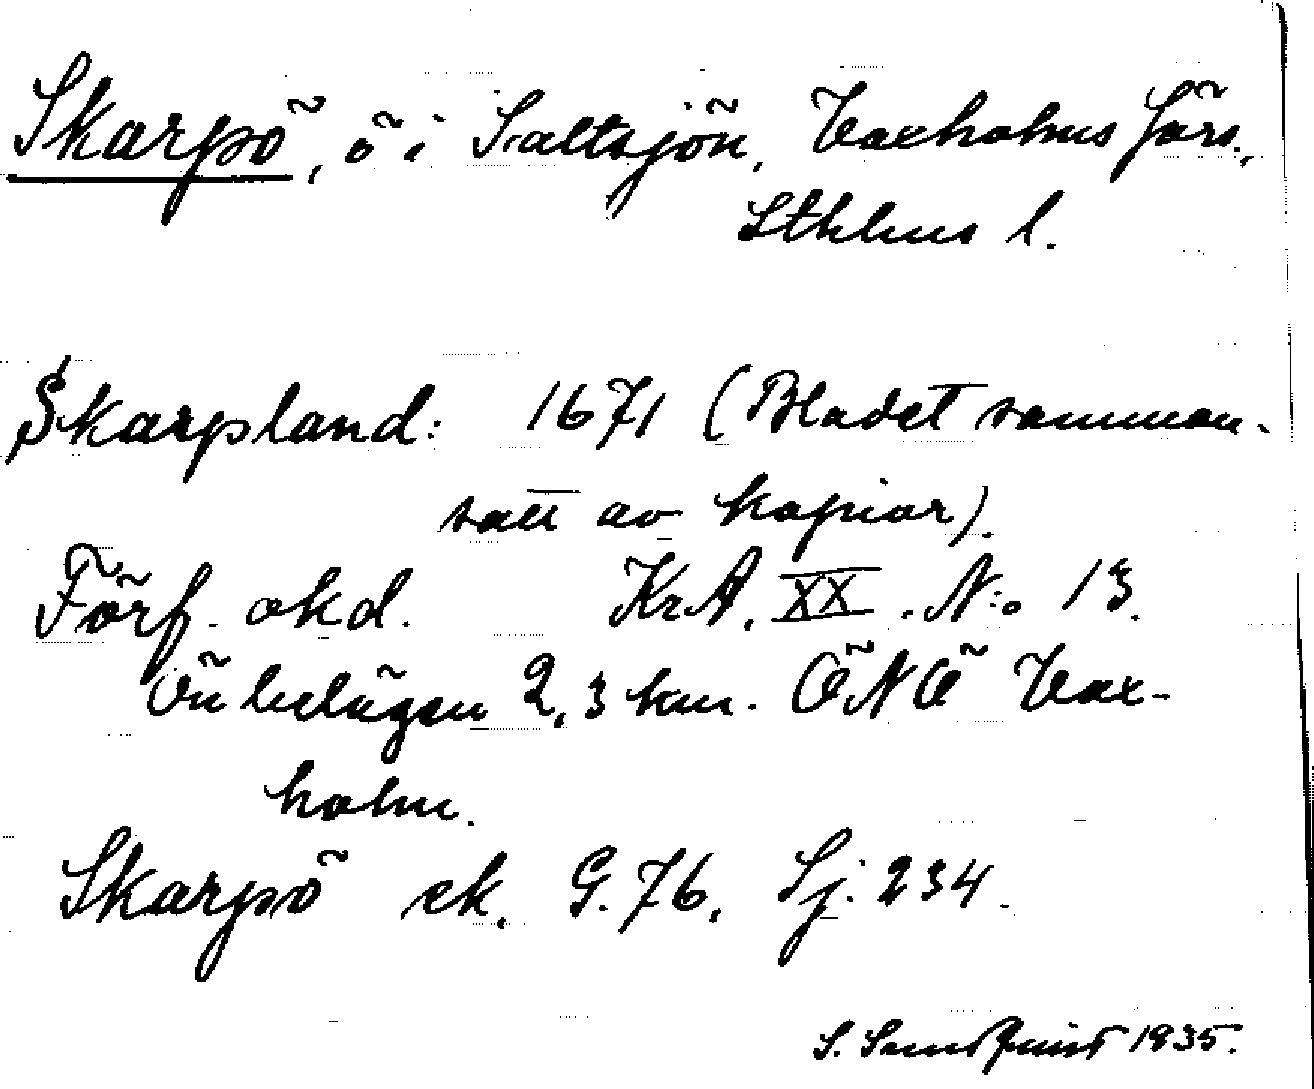 Skarpö, ö i Saltsjön, Vaxholms förs.,
Sthlms l.
Skarpland: 1671 (Bladet samman-
satt av kopior).
Förf. okd. KrA. XX. N:o 13.
Ön belägen 2,3 km. ÖNÖ Vax-
holm.
Skarpö ek. G. 76, Sj. 234.
S. Sandquist 1935.